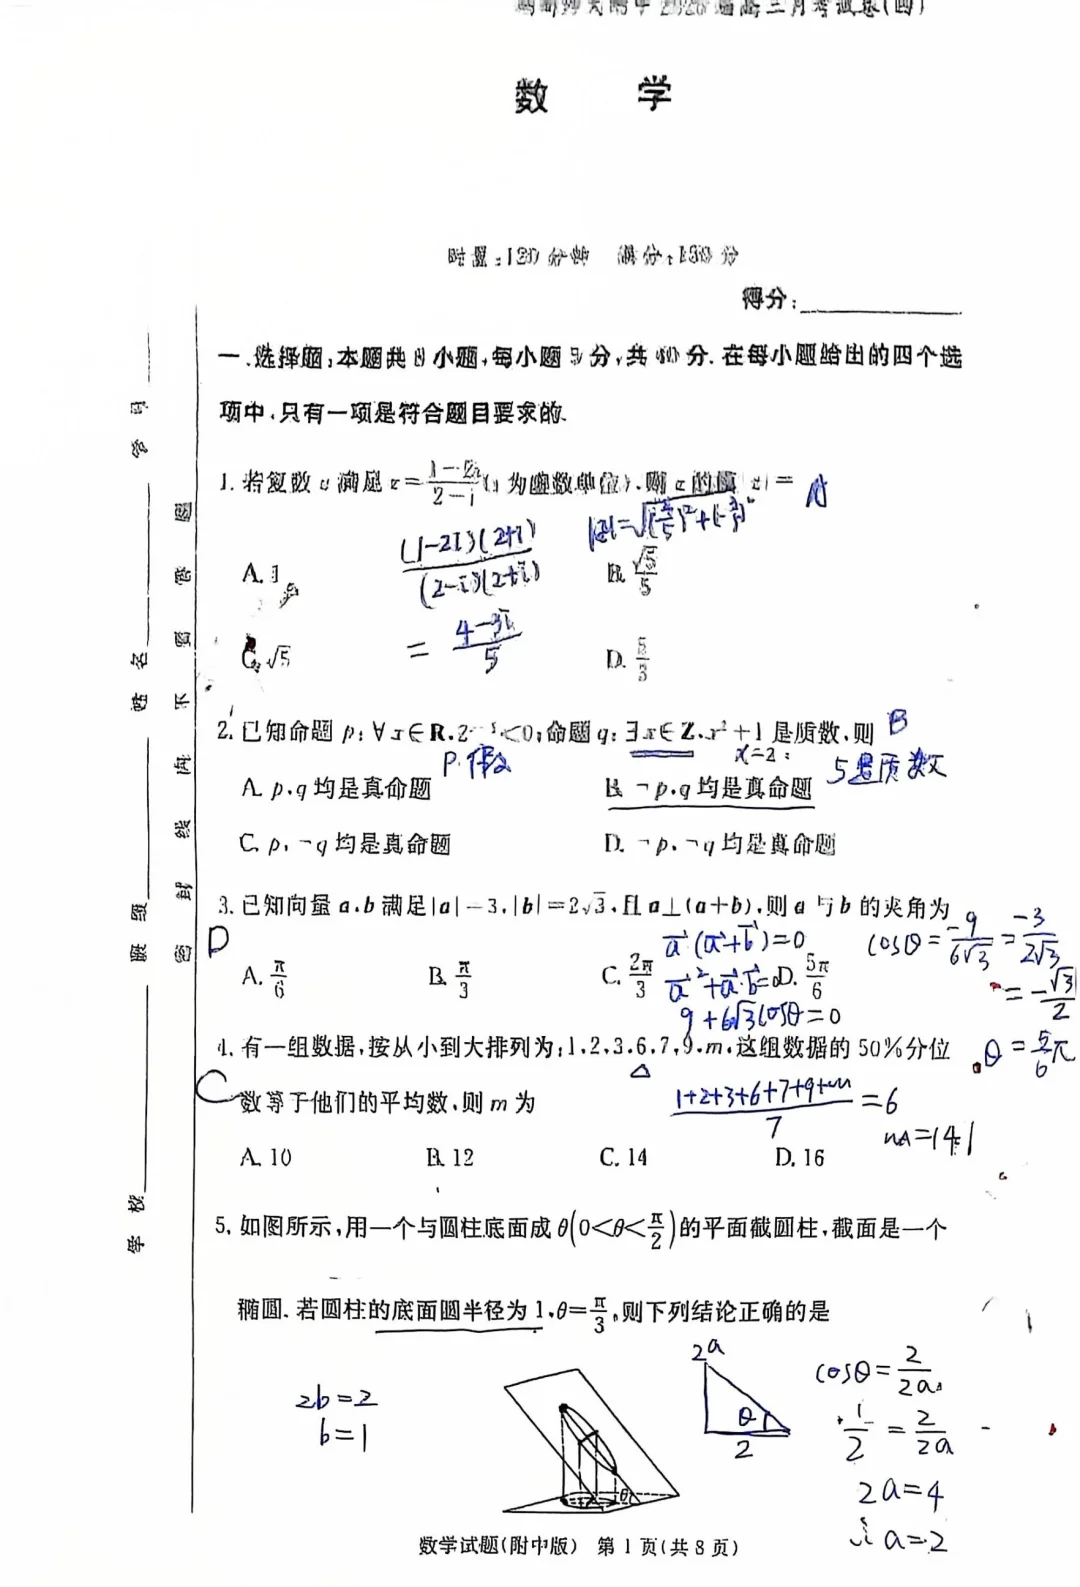 数 学
时量:120分钟 满分:150分
得分:
一、选择题:本题共8小题,每小题5分,共40分.在每小题给出的四个选
项中,只有一项是符合题目要求的.
1.若复数z满足z=\frac{1-2i}{2-i}(i为虚数单位),则z的模|z|= A
\frac{(1-2i)(2+i)}{(2-i)(2+i)}
A.1
B.\frac{√5}{5}
=\frac{4-3i}{5}
C.√5
D.\frac{5}{3}
2.已知命题p:∀x∈R,<0;命题q:∃x∈Z,x²+1是质数,则 B
P.假
x=2:
5是质数
A.p,q均是真命题
B.¬p,q均是真命题
C.p,¬q均是真命题
D.¬p,¬q均是真命题
3.已知向量a,b满足|a|=3,|b|=2√3,且a⊥(a+b),则a与b的夹角为
D
a(a+b)=0
cosθ=\frac{-9}{6√3}=\frac{-3}{2√3}
A.\frac{π}{6}
B.\frac{π}{3}
C.\frac{2π}{3}
D.\frac{5π}{6}
a²+a·b=0
=-\frac{√3}{2}
9+6√3cosθ=0
θ=\frac{5}{6}π
4.有一组数据,按从小到大排列为:1,2,3,6,7,9,m,这组数据的50%分位
C
数等于他们的平均数,则m为
\frac{1+2+3+6+7+9+m}{7}=6
m=14
A.10
B.12
C.14
D.16
5.如图所示,用一个与圆柱底面成θ(0<θ<\frac{π}{2})的平面截圆柱,截面是一个
椭圆.若圆柱的底面圆半径为1,θ=\frac{π}{3},则下列结论正确的是
2b=2
b=1
θ
2a
θ
2
cosθ=\frac{2}{2a}
\frac{1}{2}=\frac{2}{2a}
2a=4
a=2
数学试题(附中版) 第1页(共8页)
学校
班级
姓名
学号
密封线内不要答题